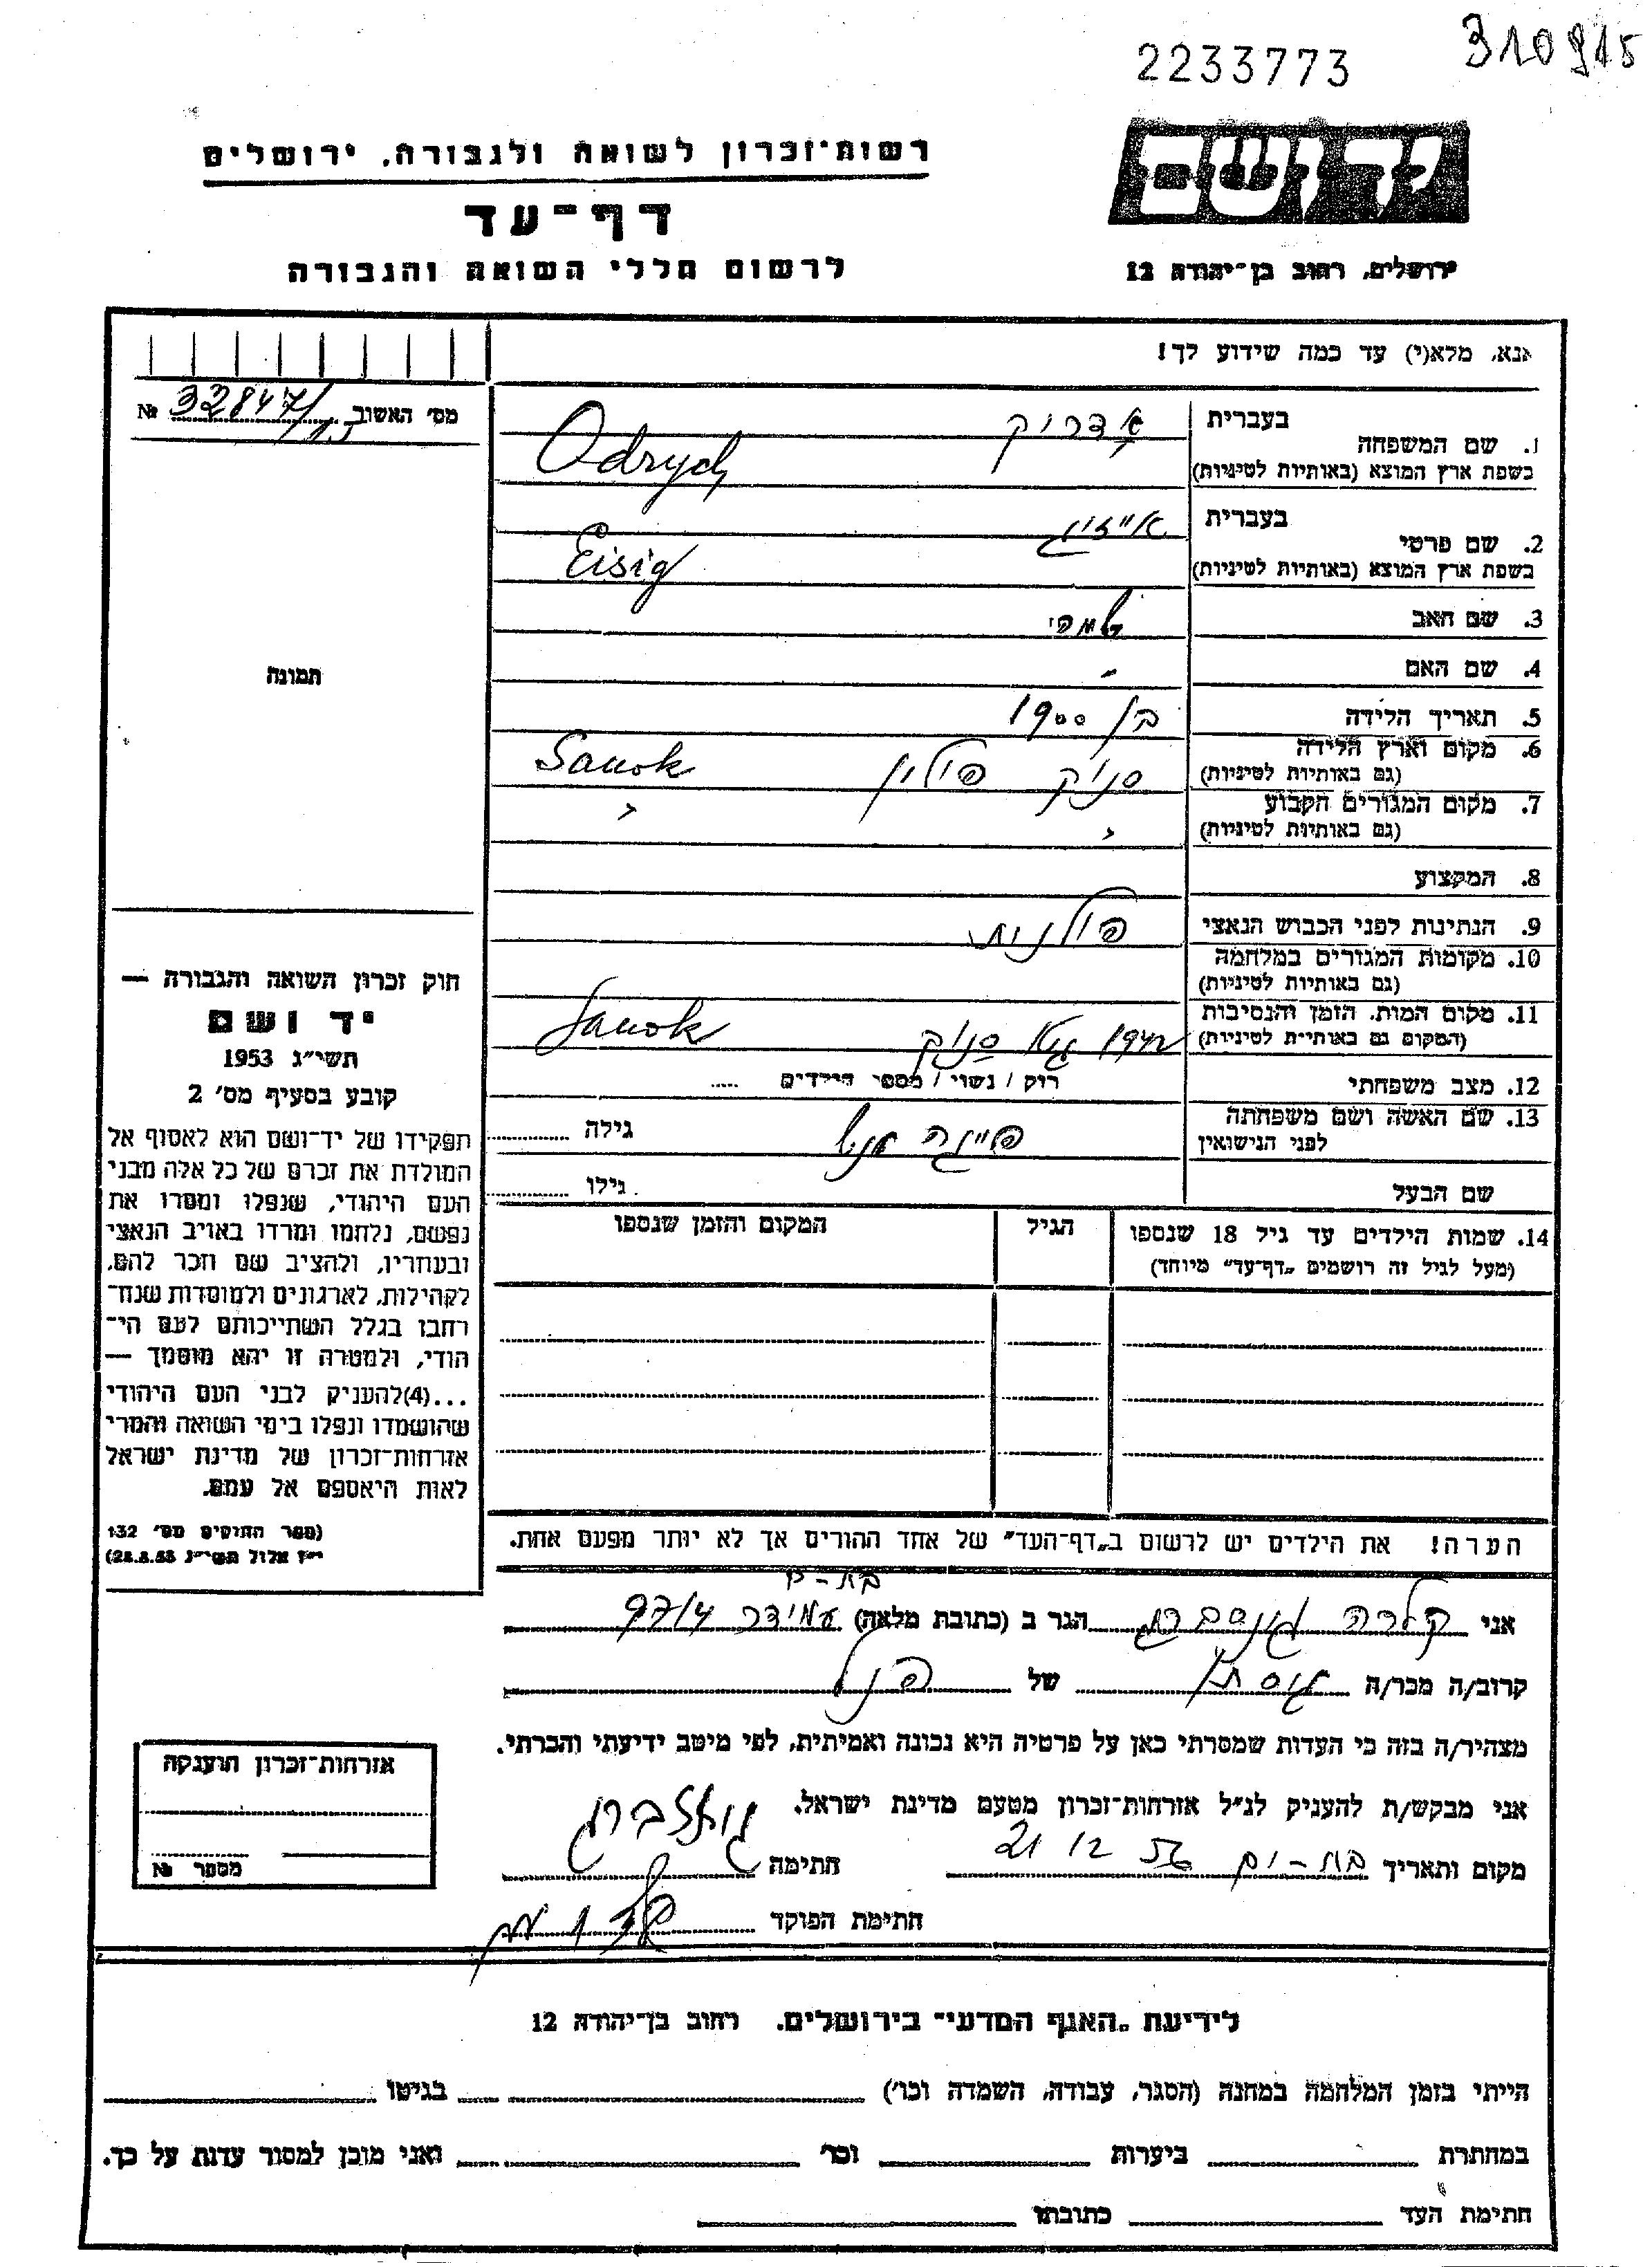 2233773
310915
יד ושם
ירושלים, רחוב בן־יהודה 12
רשות־זכרון לשואה ולגבורה, ירושלים
דף־עד
לרשום חללי השואה והגבורה
אנא, מלא(י) עד כמה שידוע לך!
מס׳ האשוב № 32847/
תמונה
1. שם המשפחה
בעברית אדריק
בשפת ארץ המוצא (באותיות לטיניות) Odrych
2. שם פרטי
בעברית אייזיג
בשפת ארץ המוצא (באותיות לטיניות) Eisig
3. שם האב
4. שם האם -
5. תאריך הלידה בן 1900
6. מקום וארץ הלידה
(גם באותיות לטיניות) סנוק פולין Sanok
7. מקום המגורים הקבוע
(גם באותיות לטיניות)
8. המקצוע
9. הנתינות לפני הכבוש הנאצי פולנית
10. מקומות המגורים במלחמה
(גם באותיות לטיניות)
11. מקום המות, הזמן והנסיבות
(המקום גם באותיות לטיניות) 1942 סנוק Sanok
12. מצב משפחתי רוק / נשוי / מספר הילדים .....
13. שם האשה ושם משפחתה
לפני הנישואין
גילה
שם הבעל
גילו
14. שמות הילדים עד גיל 18 שנספו
(מעל לגיל זה רושמים „דף־עד״ מיוחד)
הגיל
המקום והזמן שנספו
הערה! את הילדים יש לרשום ב„דף־העד״ של אחד ההורים אך לא יותר מפעם אחת.
חוק זכרון השואה והגבורה —
יד ושם
תשי״ג 1953
קובע בסעיף מס׳ 2
תפקידו של יד־ושם הוא לאסוף אל
המולדת את זכרם של כל אלה מבני
העם היהודי, שנפלו ומסרו את
נפשם, נלחמו ומרדו באויב הנאצי
ובעוזריו, ולהציב שם וזכר להם,
לקהילות, לארגונים ולמוסדות שנח־
רבו בגלל השתייכותם לעם הי־
הודי, ולמטרה זו יהא מוסמך —
...(4) להעניק לבני העם היהודי
שהושמדו ונפלו בימי השואה והמרי
אזרחות־זכרון של מדינת ישראל
לאות היאספם אל עמם.
(ספר החוקים מס׳ 132
י״ז אלול תשי״ג 28.8.53)
אני קלרה הגר ב (כתובת מלאה) עמידר 97/4
קרוב/ה מכר/ה של
מצהיר/ה בזה כי העדות שמסרתי כאן על פרטיה היא נכונה ואמיתית, לפי מיטב ידיעתי והכרתי.
אני מבקש/ת להעניק לנ״ל אזרחות־זכרון מטעם מדינת ישראל.
מקום ותאריך בת-ים 21 12 56 חתימה
חתימת הפוקד
אזרחות־זכרון הוענקה
מספר №
לידיעת „האגף המדעי״ בירושלים, רחוב בן־יהודה 12
הייתי בזמן המלחמה במחנה (הסגר, עבודה, השמדה וכו׳) בגיטו
במחתרת ביערות וכו׳ ואני מוכן למסור עדות על כך.
חתימת העד כתובתו